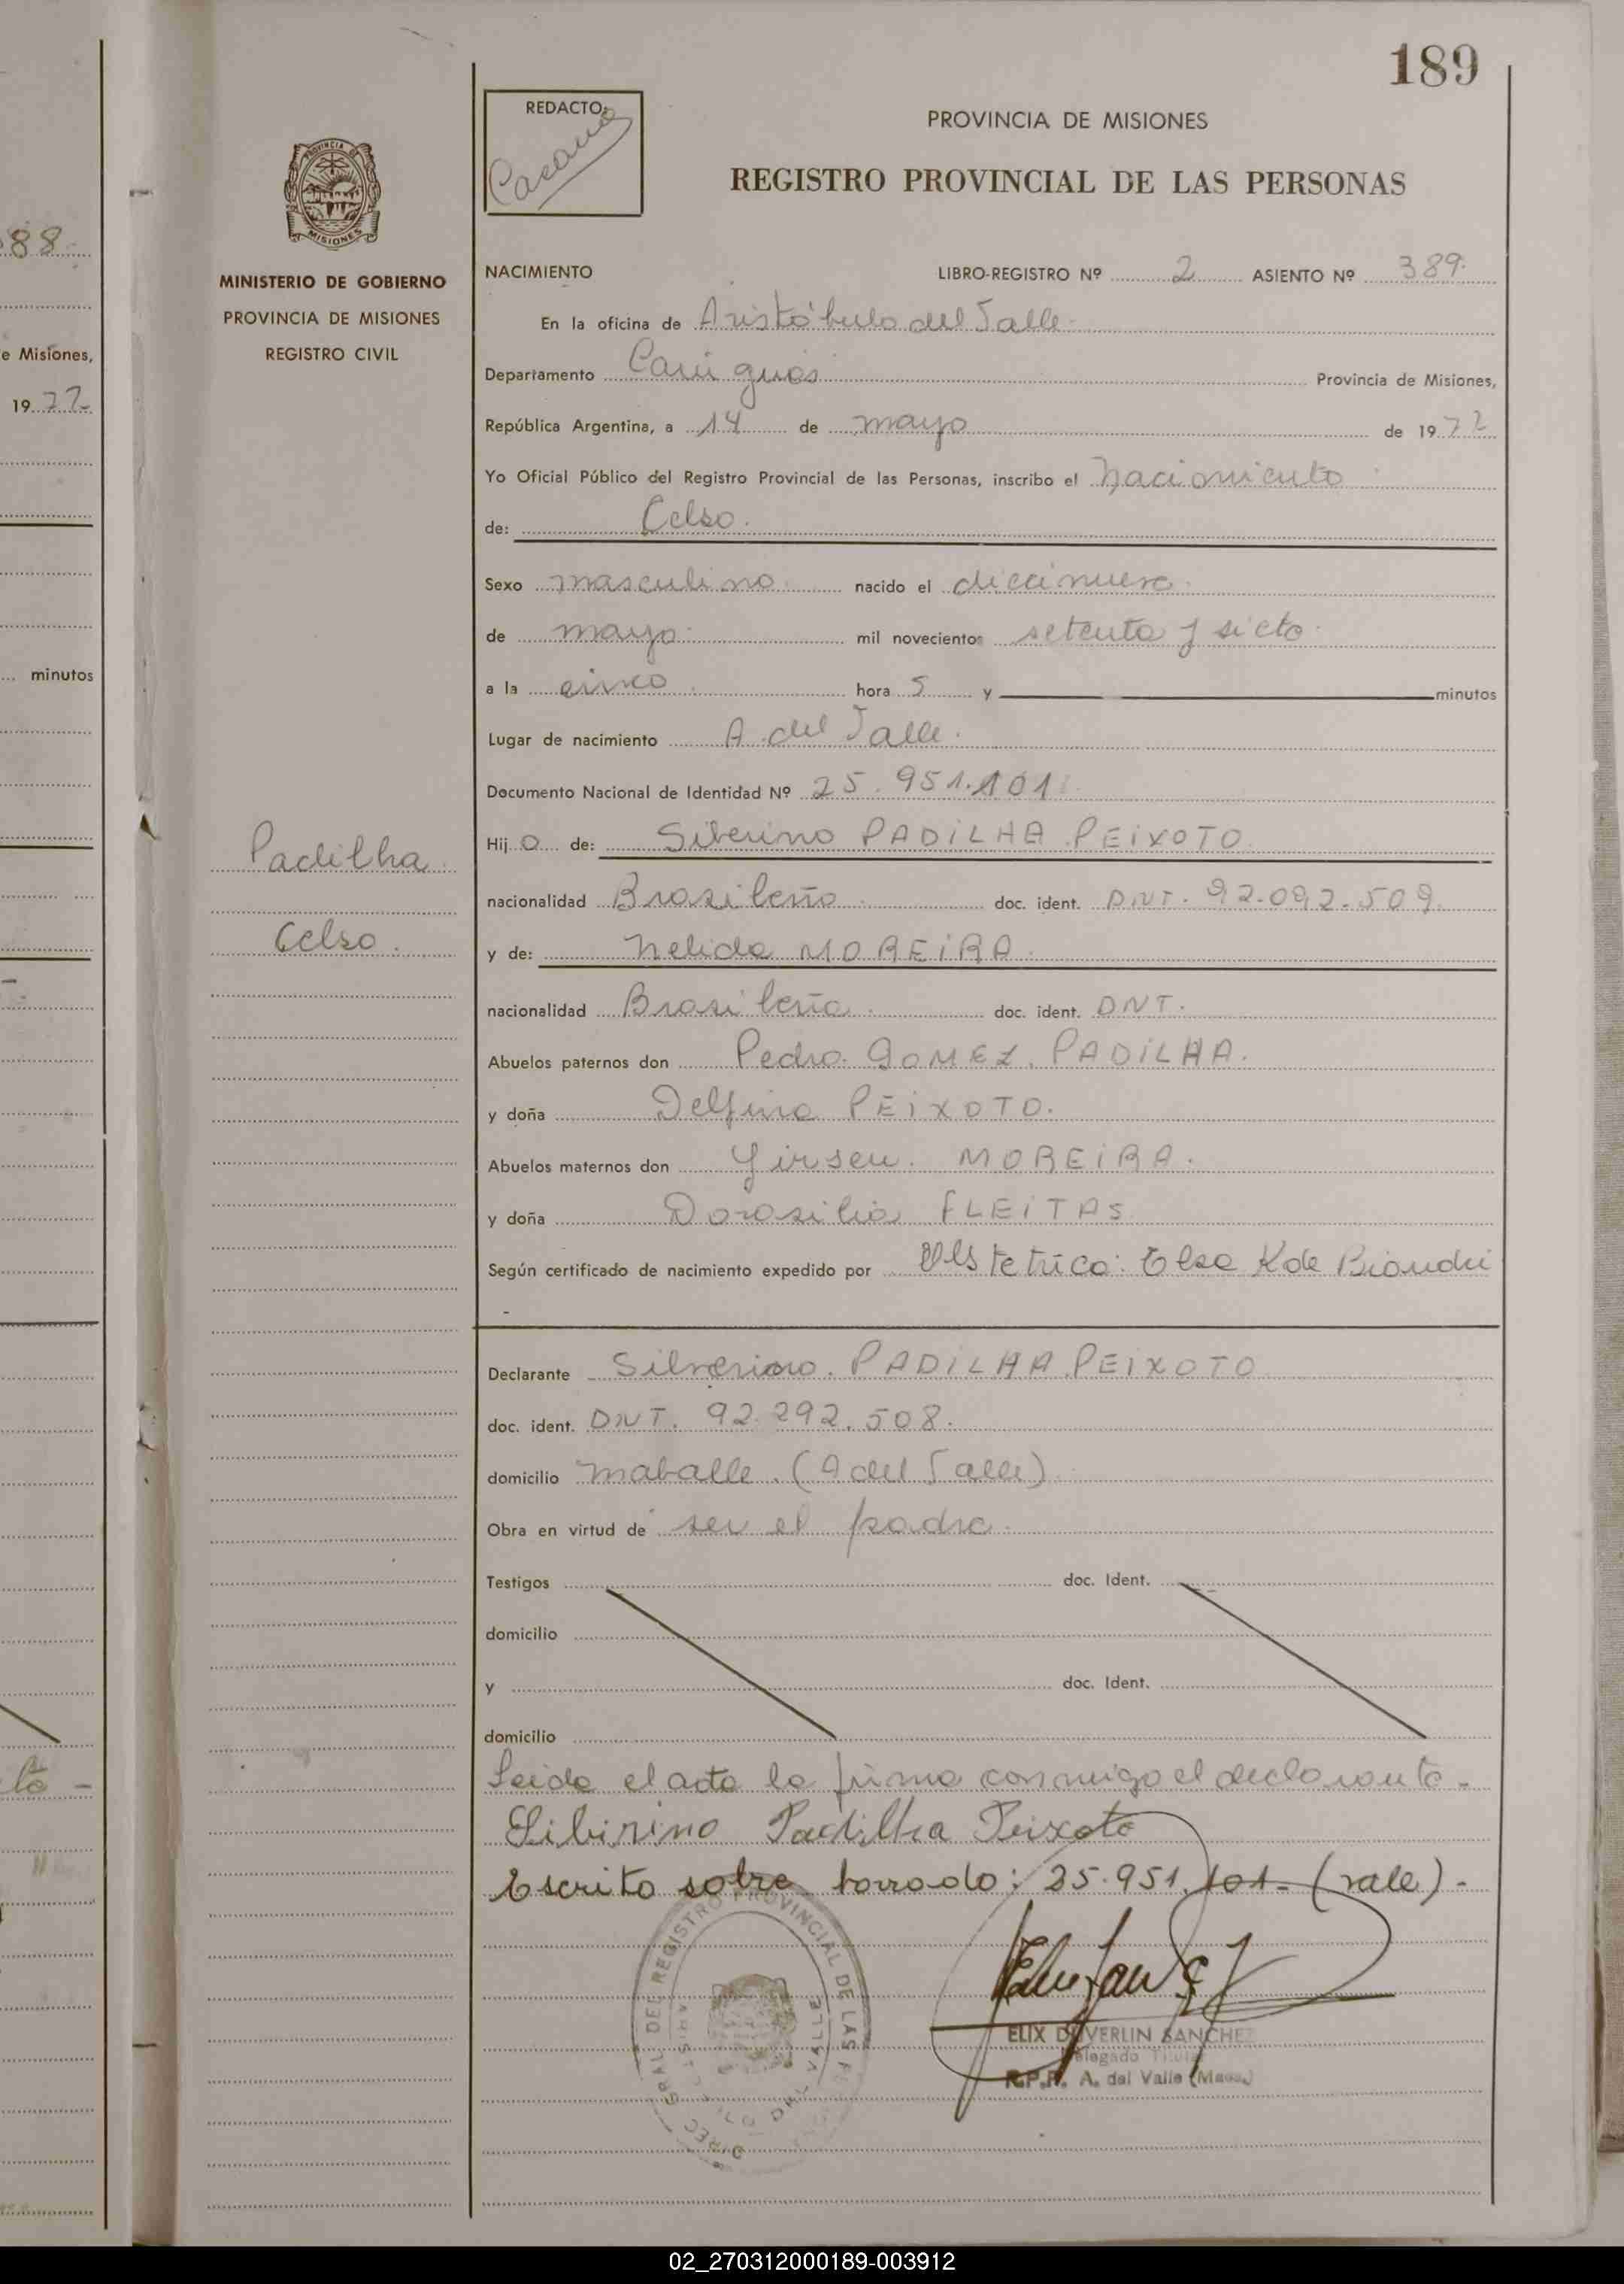 189
REDACTO:
PROVINCIA DE MISIONES
REGISTRO PROVINCIAL DE LAS PERSONAS
MINISTERIO DE GOBIERNO
PROVINCIA DE MISIONES
REGISTRO CIVIL
88
e Misiones,
19 77
minutos
NACIMIENTO LIBRO-REGISTRO Nº 2 ASIENTO Nº 389
En la oficina de Aristóbulo del Valle
Departamento Cainguás Provincia de Misiones,
República Argentina, a 14 de mayo de 1977
Yo Oficial Público del Registro Provincial de las Personas, inscribo el nacimiento
de: Celso.
Sexo masculino nacido el diecinueve
de mayo mil novecientos setenta y siete
a la cinco hora 5 y minutos
Lugar de nacimiento A. del Valle.
Documento Nacional de Identidad Nº 25.951.101
Padilha
Celso.
Hij o de: Siberino PADiLHA PEiXOTO
nacionalidad Brasileño doc. ident. DNT. 92.092.509.
y de: Nelida MOREiRA
nacionalidad Brasileña doc. ident. DNT.
Abuelos paternos don Pedro GOMEZ PADiLHA.
y doña Delfina PEiXOTO.
Abuelos maternos don MOREiRA.
y doña Dorasilia FLEiTAS
Según certificado de nacimiento expedido por Obstetrica: Elsa K de Biondi
Declarante Silverino. PADiLHA PEiXOTO
doc. ident. DNT. 92.292.508.
domicilio (A del Valle)
Obra en virtud de ser el padre.
Testigos doc. Ident.
domicilio
y doc. Ident.
domicilio
Leida el acta la firma conmigo el declarante -
Sibirino Padilha Peixoto
Escrito sobre borrado: 25.951.101 - (vale). -
DIREC. GRAL. DEL REGISTRO PROVINCIAL DE LAS
ELIX DUVERLIN SANCHEZ
Delegado Titular
R.P.P. A. del Valle
02_270312000189-003912